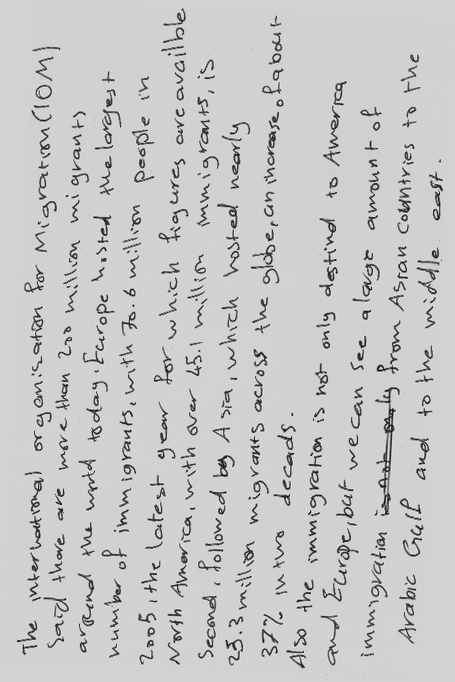 The international organisation for Migration (IOM)
Said there are more than 200 million migrants
around the world today. Europe hosted the largest
number of immigrants, with 70.6 million people in
2005, the latest year for which figures are availble
North America, with over 45.1 million immigrants, is
Second, followed by Asia, which hosted nearly
25.3 million migrants across the globe, an increase of about
37% in two decads.
Also the immigration is not only destind to America
and Europe, but we can see a large amount of
immigration from Asian countries to the
Arabic Gulf and to the middle east.